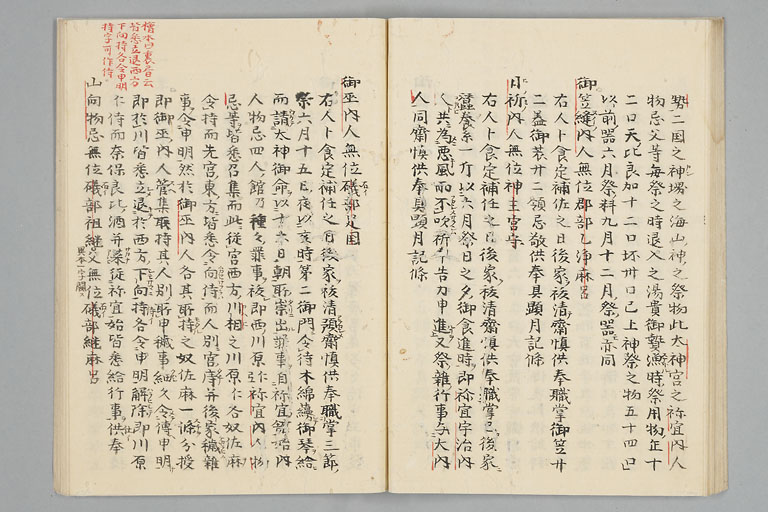 勢二国之神堺之海山神之祭物此太神宮之祢宜内人
物忌父等毎祭之時退入之湯貴御贄漁時祭用物年十
二口天比良加十二口坏卅口已上神祭之物五十四口
以前器六月祭料九月十二月祭器亦同
御笠縫内人無位郡部乙浄麻呂
右人卜食定補佐之日後家祓清齋慎供奉職掌御笠廿
二蓋御蓑廿二領忌敬供奉具顕月記條
日祈内人無位神主宮守
右人卜食定補任之日後家祓清齋慎供奉職掌已後家
蚕養糸一斤以六月祭日之夕御食進時即祢宜宇治内
人共為悪風雨不吹祈告刀申進又祭雜行事与大内
人同齋慎供奉具顕月記條
御巫内人無位礒部定国
右人卜食定補任之日後家祓清齋慎供奉職掌三節
祭六月十五日夜以亥時第二御門令待木綿蘰御琴給
而請太神御命以十六日朝取崇出罪事自祢宜館始内
人物忌四人館乃種々罪事祓即西川原仁祢宜内人物
忌等皆悉召集而此従宮西方川相之川原仁各奴佐麻
令持而先宮東方皆悉令向侍而人別宮庤并後家穢雜
事令申明然於御巫内人各其取持之奴佐麻一條分授
即御巫内人管集取持其人別取申穢事細久令傳申明
即於川皆悉立退於西方下向持各令申明解除即川原
仁侍而奈保良比酒并䕃従祢宜始皆悉給行事供奉
山向物忌無位礒部祖継父無位礒部継麻呂
異本一字闕ス
檜本曰裏書云
皆悉立退西方
下向持各令申明
持字可作侍